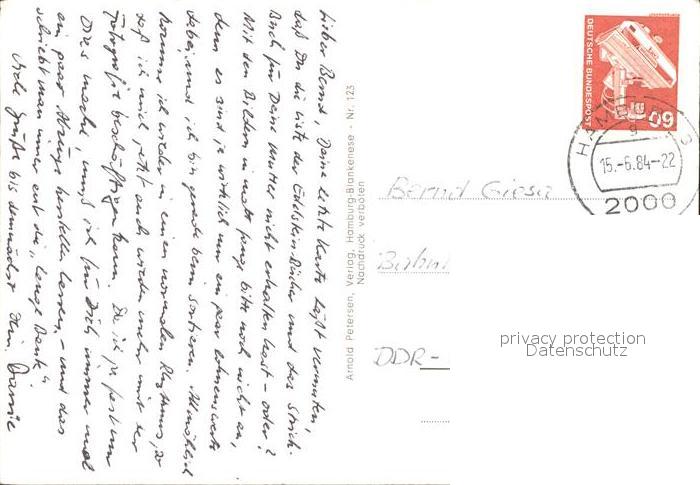 Lieber Bernd, Deine letzte Karte läßt vermuten,
daß Du die Liste der Edelstein-Bücher und das Strick-
Buch für Deine Mutter nicht erhalten hast - oder?
Mit den Bildern in matt fange bitte noch nicht an,
denn es sind ja wirklich nur ein paar lohnenswerte
dabei, und ich bin gerade beim Sortieren. Allmählich
komme ich wieder in einen normalen Rhythmus, so
daß ich mich jetzt auch wieder mehr mit der
Fotografie beschäftigen kann. Da ich ja fast nur
Dias mache, muß ich für Dich immer mal
ein paar Abzüge herstellen lassen, - und das
schiebt man immer auf die "lange Bank".
Viele Grüße bis demnächst Dein
Arnold Petersen, Verlag, Hamburg-Blankenese - Nr. 123
Nachdruck verboten
DEUTSCHE BUNDESPOST
60
HAMBURG
15.-6.84-22
2000
Bernd Giesa
DDR-
privacy protection
Datenschutz